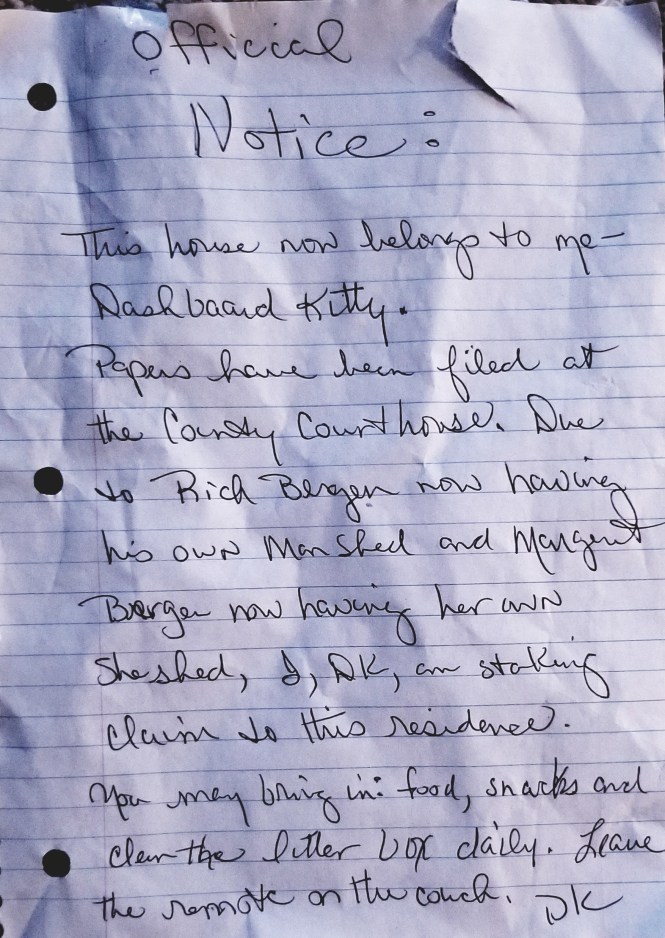 Official
Notice:
This house now belongs to me-
Dashbaard Kitty.
Papers have been filed at
the County Courthouse. Due
to Rich Bergen now having
his own Man Shed and Margent
Bergen now having her own
She shed, I, DK, am staking
claim to this residence.
You may bring in: food, snacks and
clean the litter box daily. Leave
the remote on the couch. DK